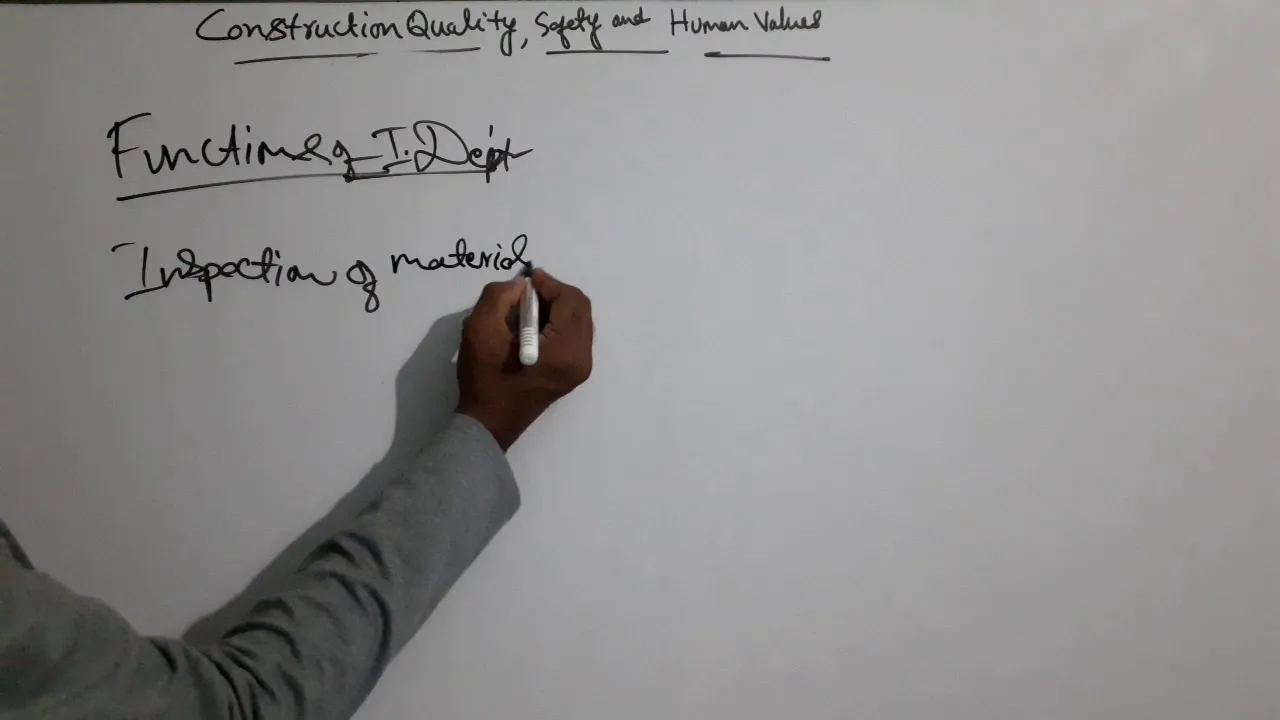 Construction Quality, Safety and Human Values
Functions of I. Dept
Inspection of material